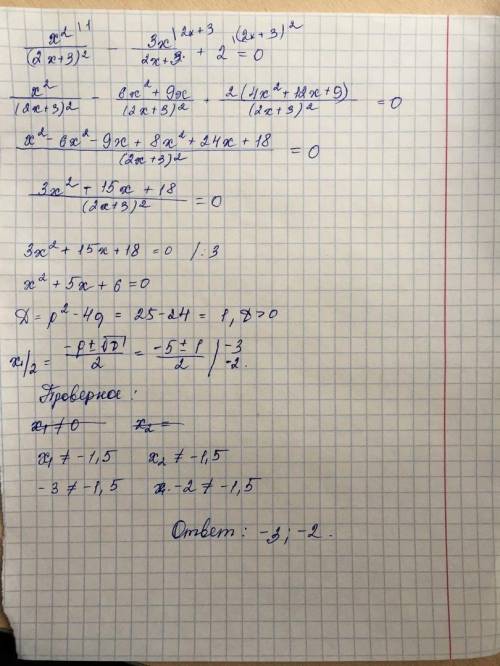 x²|¹/(2x+3)² - 3x|²ˣ⁺³/2x+3 + 2|⁽²ˣ⁺³⁾² = 0
x²/(2x+3)² - 6x²+9x/(2x+3)² + 2(4x²+12x+9)/(2x+3)² = 0
x²-6x²-9x+8x²+24x+18/(2x+3)² = 0
3x²+15x+18/(2x+3)² = 0
3x²+15x+18=0 /:3
x²+5x+6=0
D=p²-4q=25-24=1, D>0
x₁/₂ = -p±√D/2 = -5±1/2 | -3
-2.
Проверка:
x₁≠0 x₂=
x₁≠-1,5 x₂≠-1,5
-3≠-1,5 -2≠-1,5
Ответ: -3; -2.